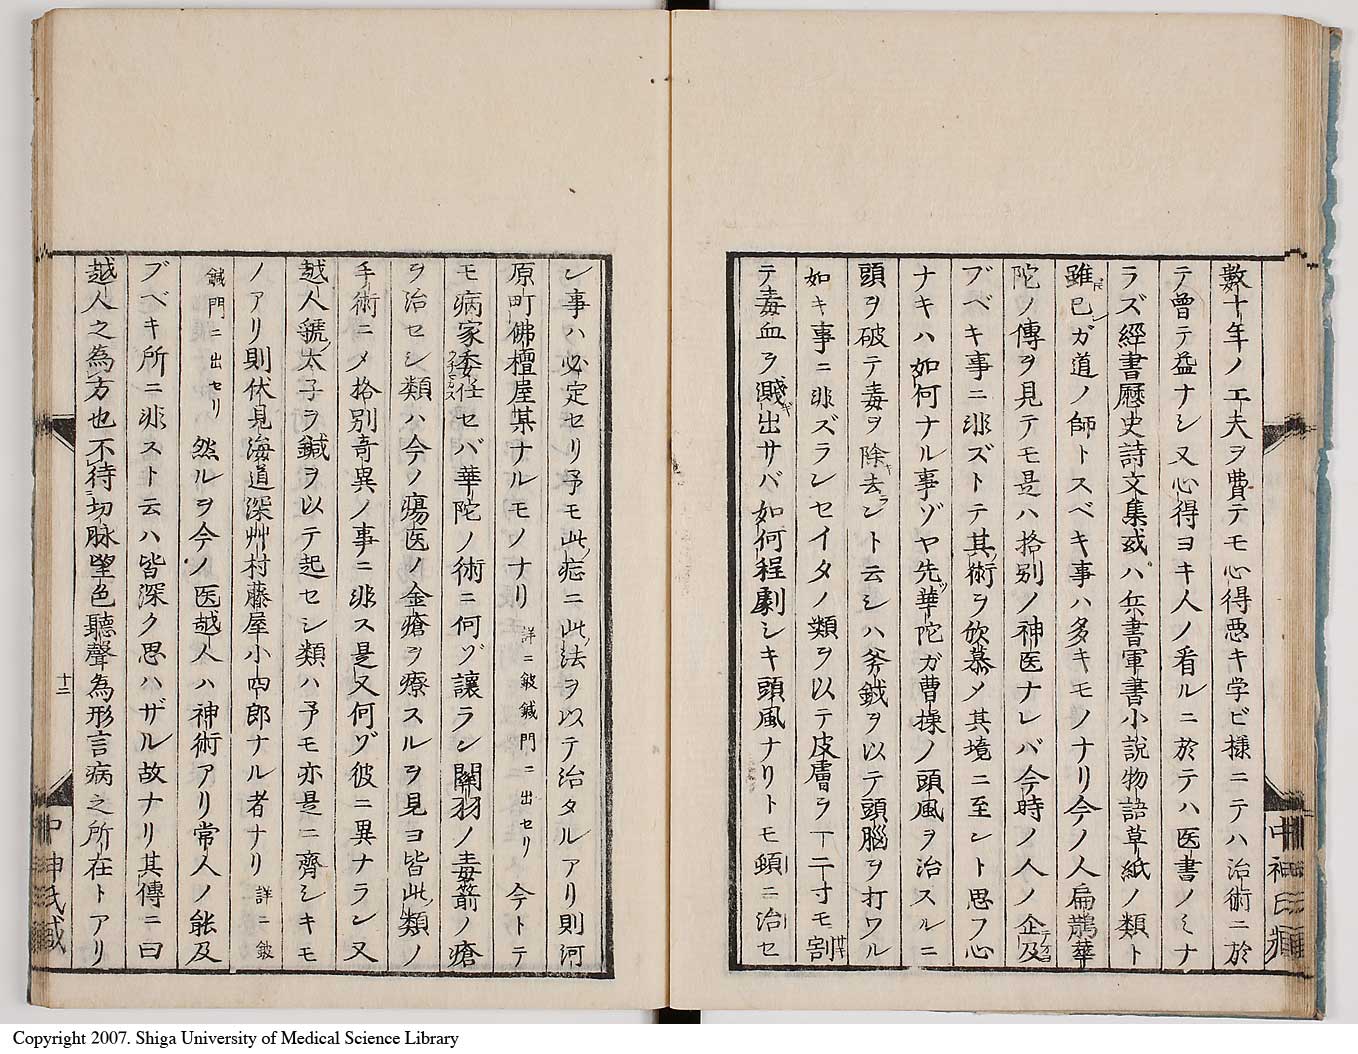 數十年ノ工夫ヲ費テモ心得悪キ学ビ様ニテハ治術ニ於
テ曾テ益ナシ又心得ヨキ人ノ看ルニ於テハ医書ノミナ
ラズ經書歴史詩文集或ハ兵書軍書小説物語草紙ノ類ト
雖己ガ道ノ師トスベキ事ハ多キモノナリ今ノ人扁鵲華
陀ノ傳ヲ見テモ是ハ格別ノ神医ナレバ今時ノ人ノ企及
ブベキ事ニ非ズトテ其術ヲ欽慕メ其境ニ至ント思フ心
ナキハ如何ナル事ゾヤ先華陀ガ曹操ノ頭風ヲ治スルニ
頭ヲ破テ毒ヲ除去ント云シハ斧鉞ヲ以テ頭腦ヲ打ワル
如キ事ニ非ズランセイタノ類ヲ以テ皮膚ヲ一二寸モ割
テ毒血ヲ濺出サバ如何程劇シキ頭風ナリトモ頓ニ治セ
シ事ハ必定セリ予モ此症ニ此法ヲ以テ治タルアリ則河
原町佛檀屋某ナルモノナリ 詳ニ鈹鍼門ニ出セリ 今トテ
モ病家委任セバ華陀ノ術ニ何ゾ讓ラン關羽ノ毒箭ノ瘡
ヲ治セシ類ハ今ノ瘍医ノ金瘡ヲ療スルヲ見ヨ皆此類ノ
手術ニメ格別奇異ノ事ニ非ス是又何ゾ彼ニ異ナラン又
越人虢太子ヲ鍼ヲ以テ起セシ類ハ予モ亦是ニ齊シキモ
ノアリ則伏見海道深艸村藤屋小四郎ナル者ナリ 詳ニ鈹
鍼門ニ出セリ 然ルヲ今ノ医越人ハ神術アリ常人ノ能及
ブベキ所ニ非スト云ハ皆深ク思ハザル故ナリ其傳ニ曰
越人之為方也不待切脉望色聽聲為形言病之所在トアリ
十二
中神氏藏
Copyright 2007. Shiga University of Medical Science Library